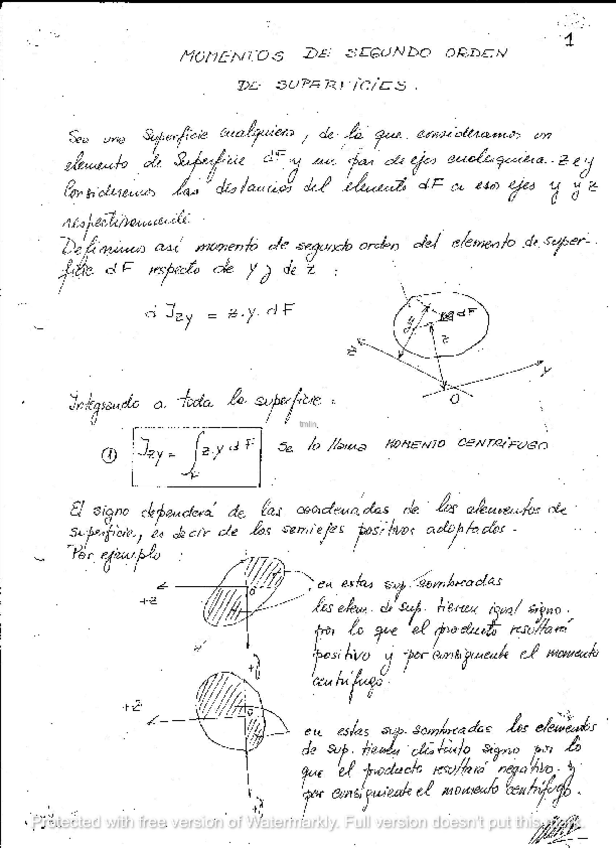 1
MOMENTOS DE SEGUNDO ORDEN
DE SUPERFICIES.
Sea una Superficie cualquiera, de la que consideramos un
elemento de Superficie dF y un par de ejes cualesquiera z e y
Consideremos las distancias del elemento dF a esos ejes y y z
respectivamente.
Definimos así momento de segundo orden del elemento de super-
ficie dF respecto de y y de z :
d Jzy = z.y. dF
y
dF
z
z
y
O
Integrando a toda la superficie :
① Jzy = ∫F z.y dF Se lo llama MOMENTO CENTRÍFUGO
El signo dependerá de las coordenadas de los elementos de
superficie, es decir de los semiejes positivos adoptados.
Por ejemplo :
+z
O
+y
en estas sup. sombreadas
los elem. de sup. tienen igual signo.
por lo que el producto resultará
positivo y por consiguiente el momento
centrífugo.
+z
O
+y
en estas sup. sombreadas los elementos
de sup. tienen distinto signo por lo
que el producto resultará negativo. y
por consiguiente el momento centrífugo.
Protected with free version of Watermarkly. Full version doesn't put this mark.